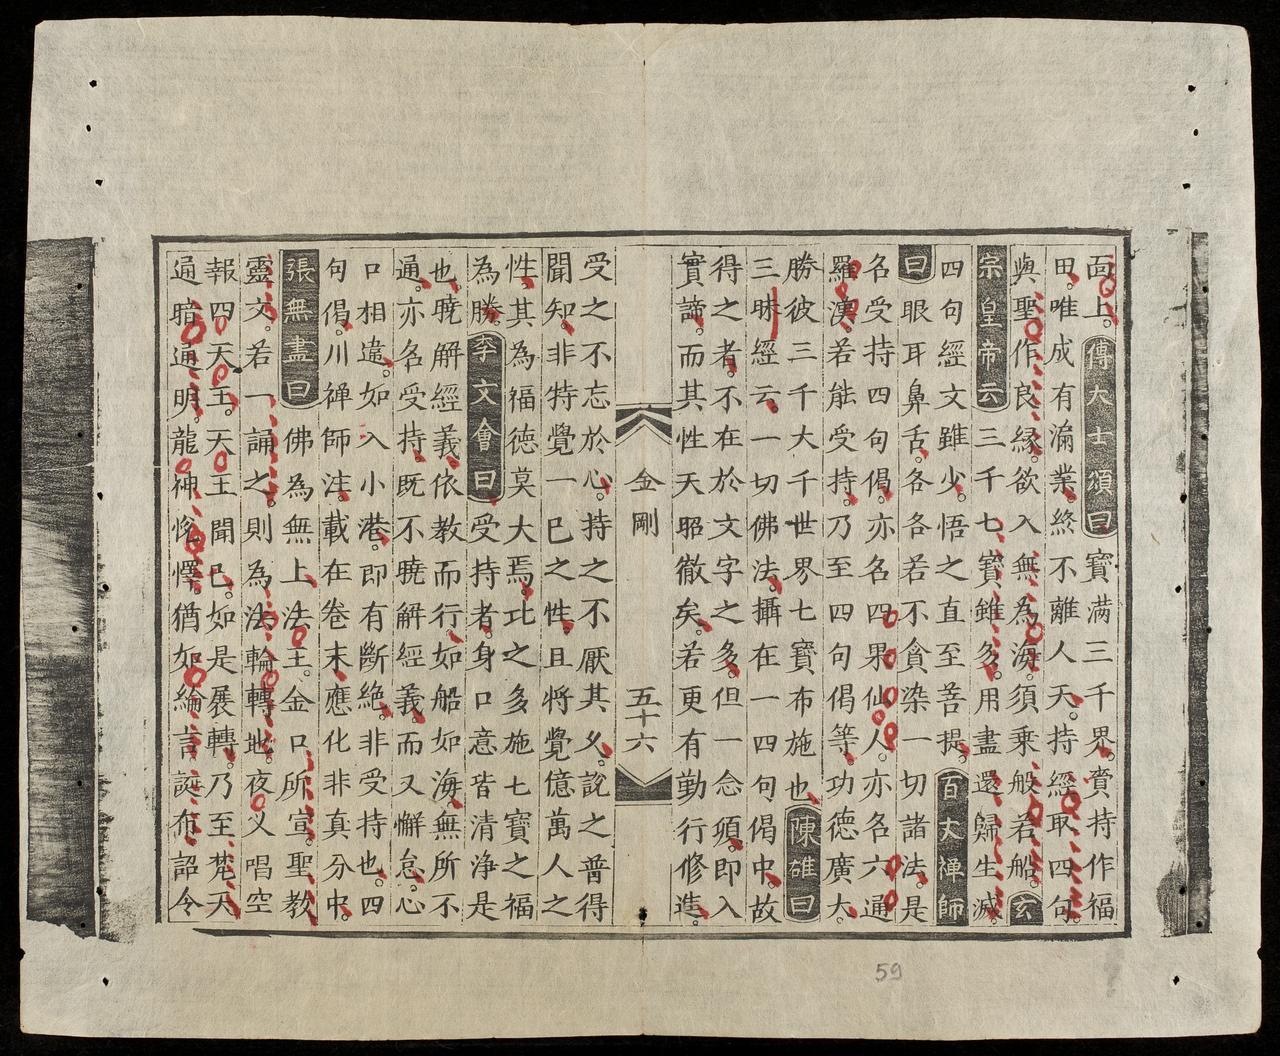 面上。傅大士頌曰寶滿三千界。賫持作福
田。唯成有漏業。終不離人天。持經取四句。
與聖作良縁。欲入無為海。須乗般若船。玄
宗皇帝云三千七寶雖多。用盡還歸生滅。
四句經文雖少。悟之直至菩提。百丈禅師
曰眼耳鼻舌。各各若不貪染一切諸法。是
名受持四句偈。亦名四果仙人。亦名六通
羅漢。若能受持。乃至四句偈等。功德廣大。
勝彼三千大千世界七寶布施也。陳雄曰
三昧經云。一切佛法。攝在一四句偈中。故
得之者。不在於文字之多。但一念頃。即入
實諦。而其性天昭徹矣。若更有勤行修造。
金剛 五十六
受之不忘於心。持之不厭其久。說之普得
聞知。非特覺一巳之性。且将覺億萬人之
性。其為福德莫大焉。比之多施七寶之福
為勝。李文會曰受持者。身口意皆清浄是
也。曉解經義。依教而行。如船如海。無所不
通。亦名受持。既不曉解經義。而又懈怠。心
口相違。如入小港。即有斷絶。非受持也。四
句偈。川禅師注。載在卷末。應化非真分中。
張無盡曰佛為無上法王。金口所宣。聖教
靈文。若一誦之。則為法輪轉地。夜叉唱空
報四天王。天王聞巳。如是展轉。乃至梵天
通暗通明。龍神恱懌。猶如綸言誕布。詔令
59